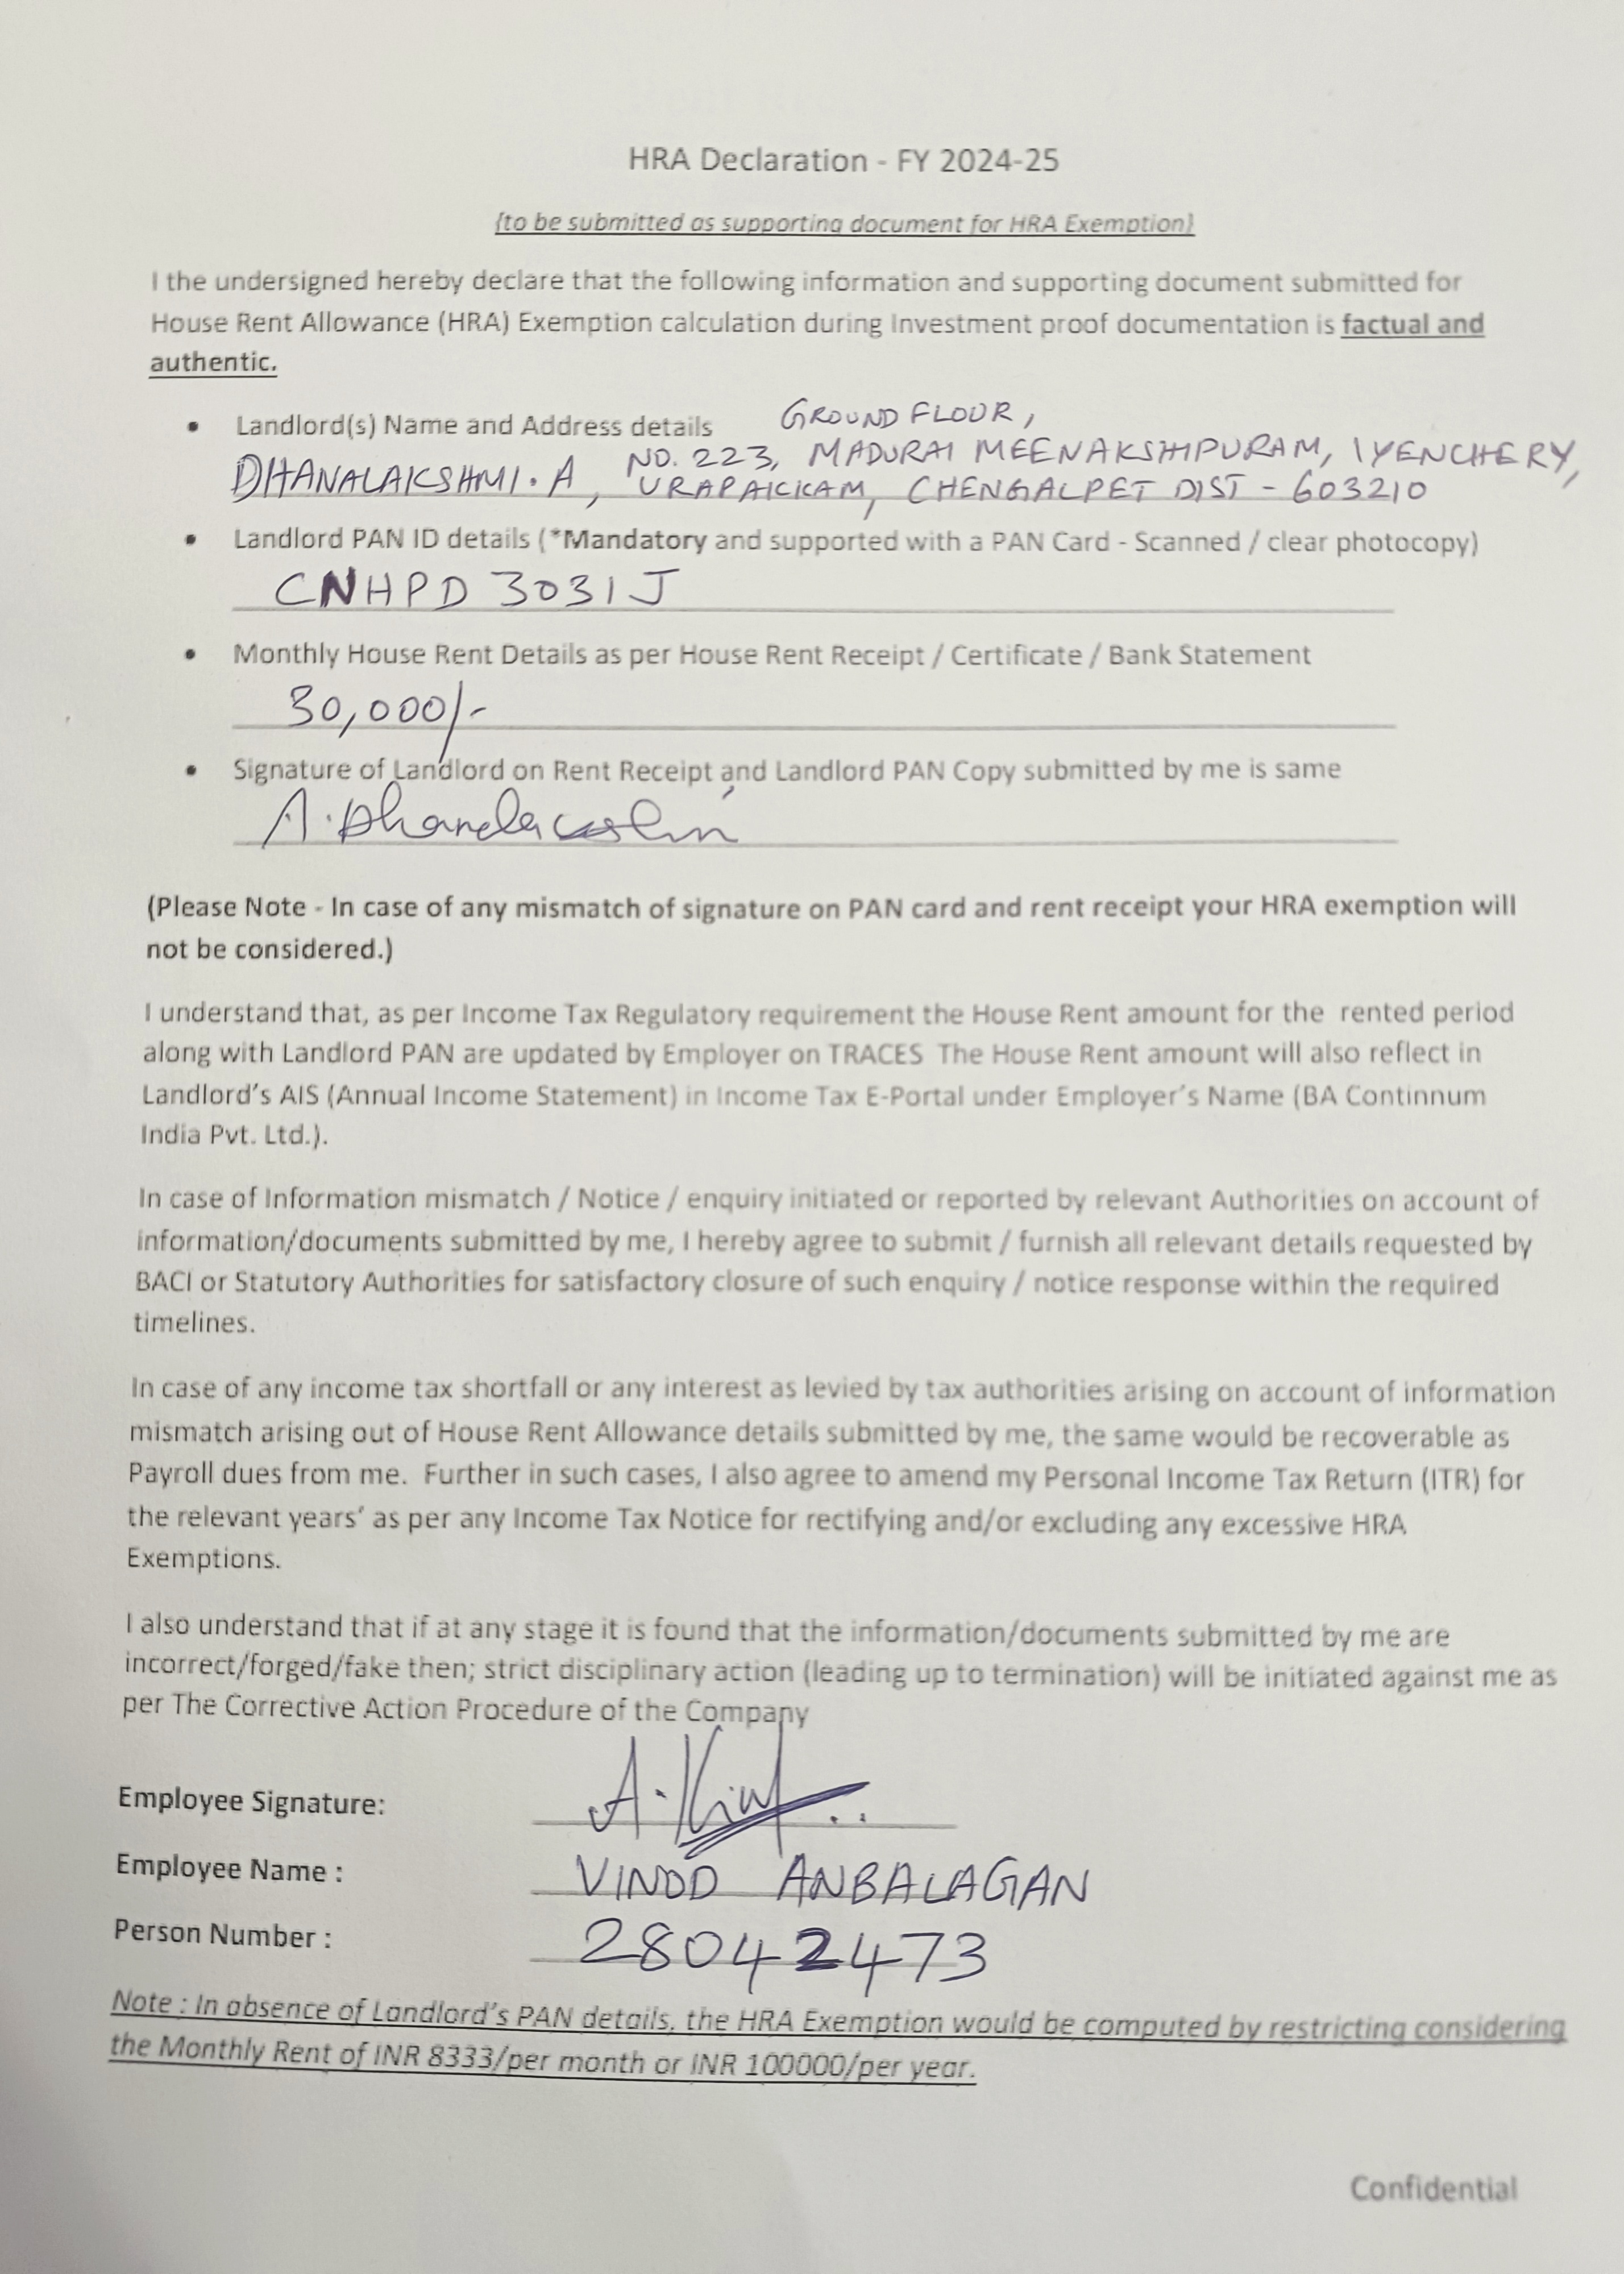 HRA Declaration - FY 2024-25
(to be submitted as supporting document for HRA Exemption)
I the undersigned hereby declare that the following information and supporting document submitted for
House Rent Allowance (HRA) Exemption calculation during Investment proof documentation is factual and
authentic.
• Landlord(s) Name and Address details GROUND FLOOR,
NO. 223, MADURAI MEENAKSHIPURAM, IYENCHERY,
DHANALAKSHMI. A, URAPAKKAM, CHENGALPET DIST - 603210
• Landlord PAN ID details (*Mandatory and supported with a PAN Card - Scanned / clear photocopy)
CNHPD 3031J
• Monthly House Rent Details as per House Rent Receipt / Certificate / Bank Statement
30,000/-
• Signature of Landlord on Rent Receipt and Landlord PAN Copy submitted by me is same
A. Dhanalakshmi
(Please Note - In case of any mismatch of signature on PAN card and rent receipt your HRA exemption will
not be considered.)
I understand that, as per Income Tax Regulatory requirement the House Rent amount for the rented period
along with Landlord PAN are updated by Employer on TRACES The House Rent amount will also reflect in
Landlord's AIS (Annual Income Statement) in Income Tax E-Portal under Employer's Name (BA Continnum
India Pvt. Ltd.).
In case of Information mismatch / Notice / enquiry initiated or reported by relevant Authorities on account of
information/documents submitted by me, I hereby agree to submit / furnish all relevant details requested by
BACI or Statutory Authorities for satisfactory closure of such enquiry / notice response within the required
timelines.
In case of any income tax shortfall or any interest as levied by tax authorities arising on account of information
mismatch arising out of House Rent Allowance details submitted by me, the same would be recoverable as
Payroll dues from me. Further in such cases, I also agree to amend my Personal Income Tax Return (ITR) for
the relevant years' as per any Income Tax Notice for rectifying and/or excluding any excessive HRA
Exemptions.
I also understand that if at any stage it is found that the information/documents submitted by me are
incorrect/forged/fake then; strict disciplinary action (leading up to termination) will be initiated against me as
per The Corrective Action Procedure of the Company
Employee Signature:
Employee Name : VINOD ANBALAGAN
Person Number : 28042473
Note : In absence of Landlord's PAN details, the HRA Exemption would be computed by restricting considering
the Monthly Rent of INR 8333/per month or INR 100000/per year.
Confidential